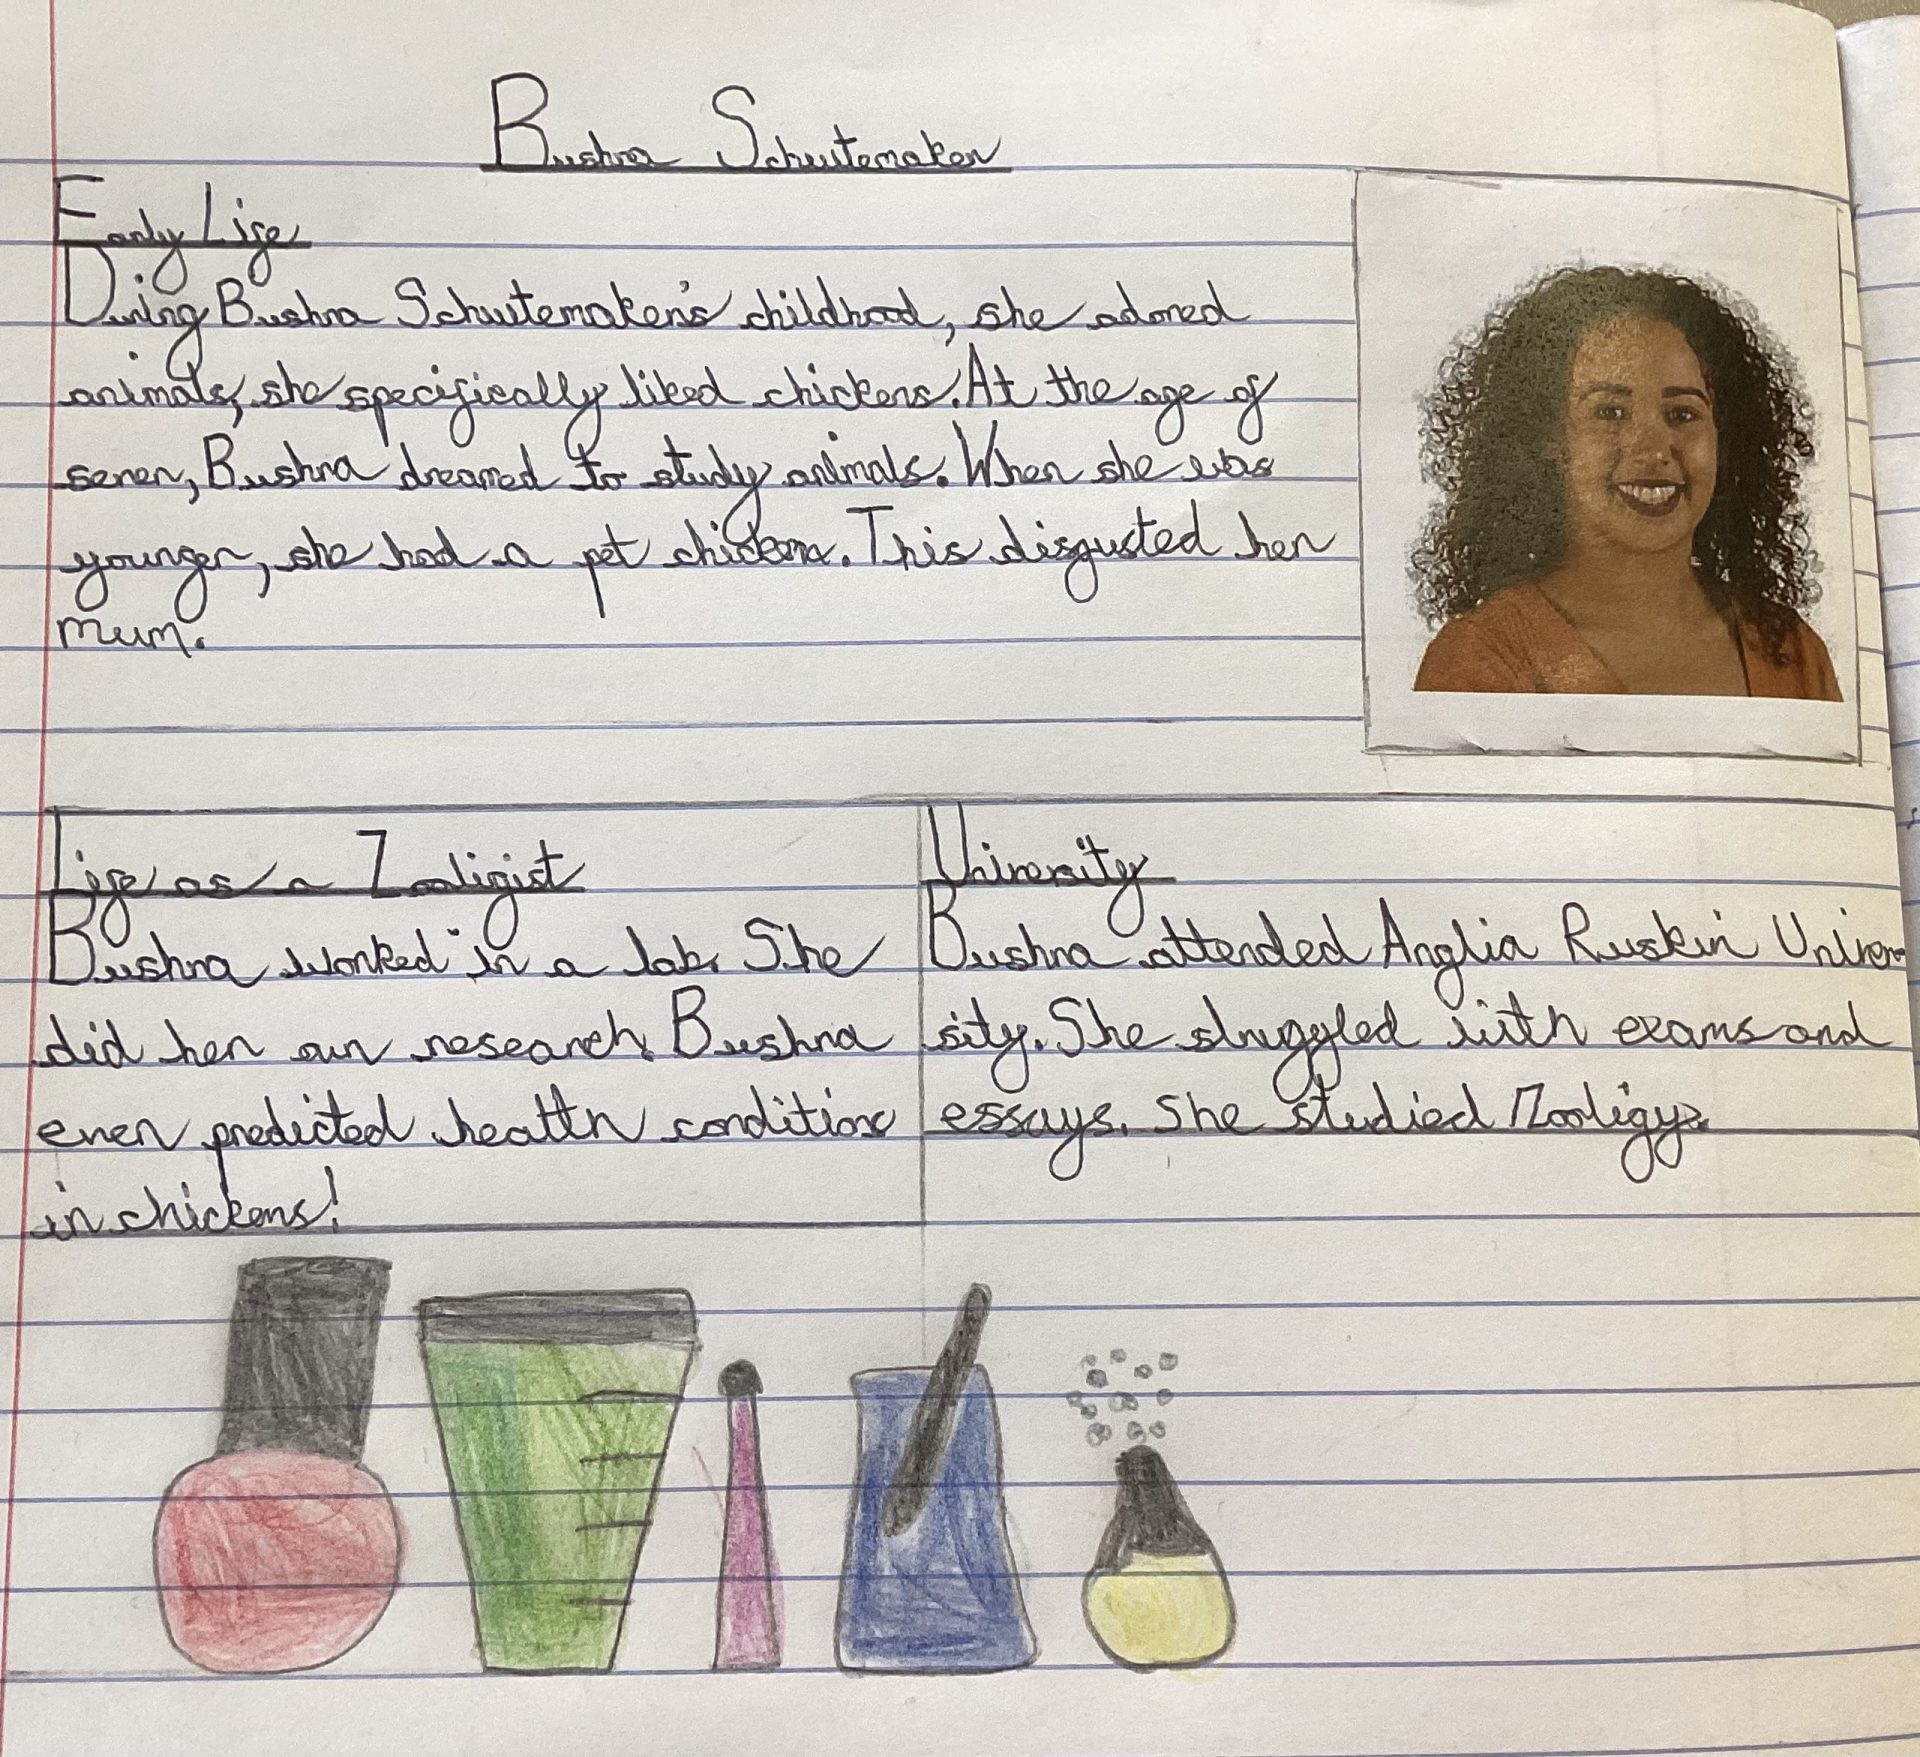 Bushra Schuitemaker
Early Life
During Bushra Schuitemaker's childhood, she adored
animals, she specifically liked chickens. At the age of
seven, Bushra dreamed to study animals. When she was
younger, she had a pet chicken. This disgusted her
mum.
Life as a Zooligist
Bushra worked in a lab. She
did her own research. Bushra
even predicted health conditions
in chickens!
University
Bushra attended Anglia Ruskin Univer-
sity. She struggled with exams and
essays. She studied Zooligy.